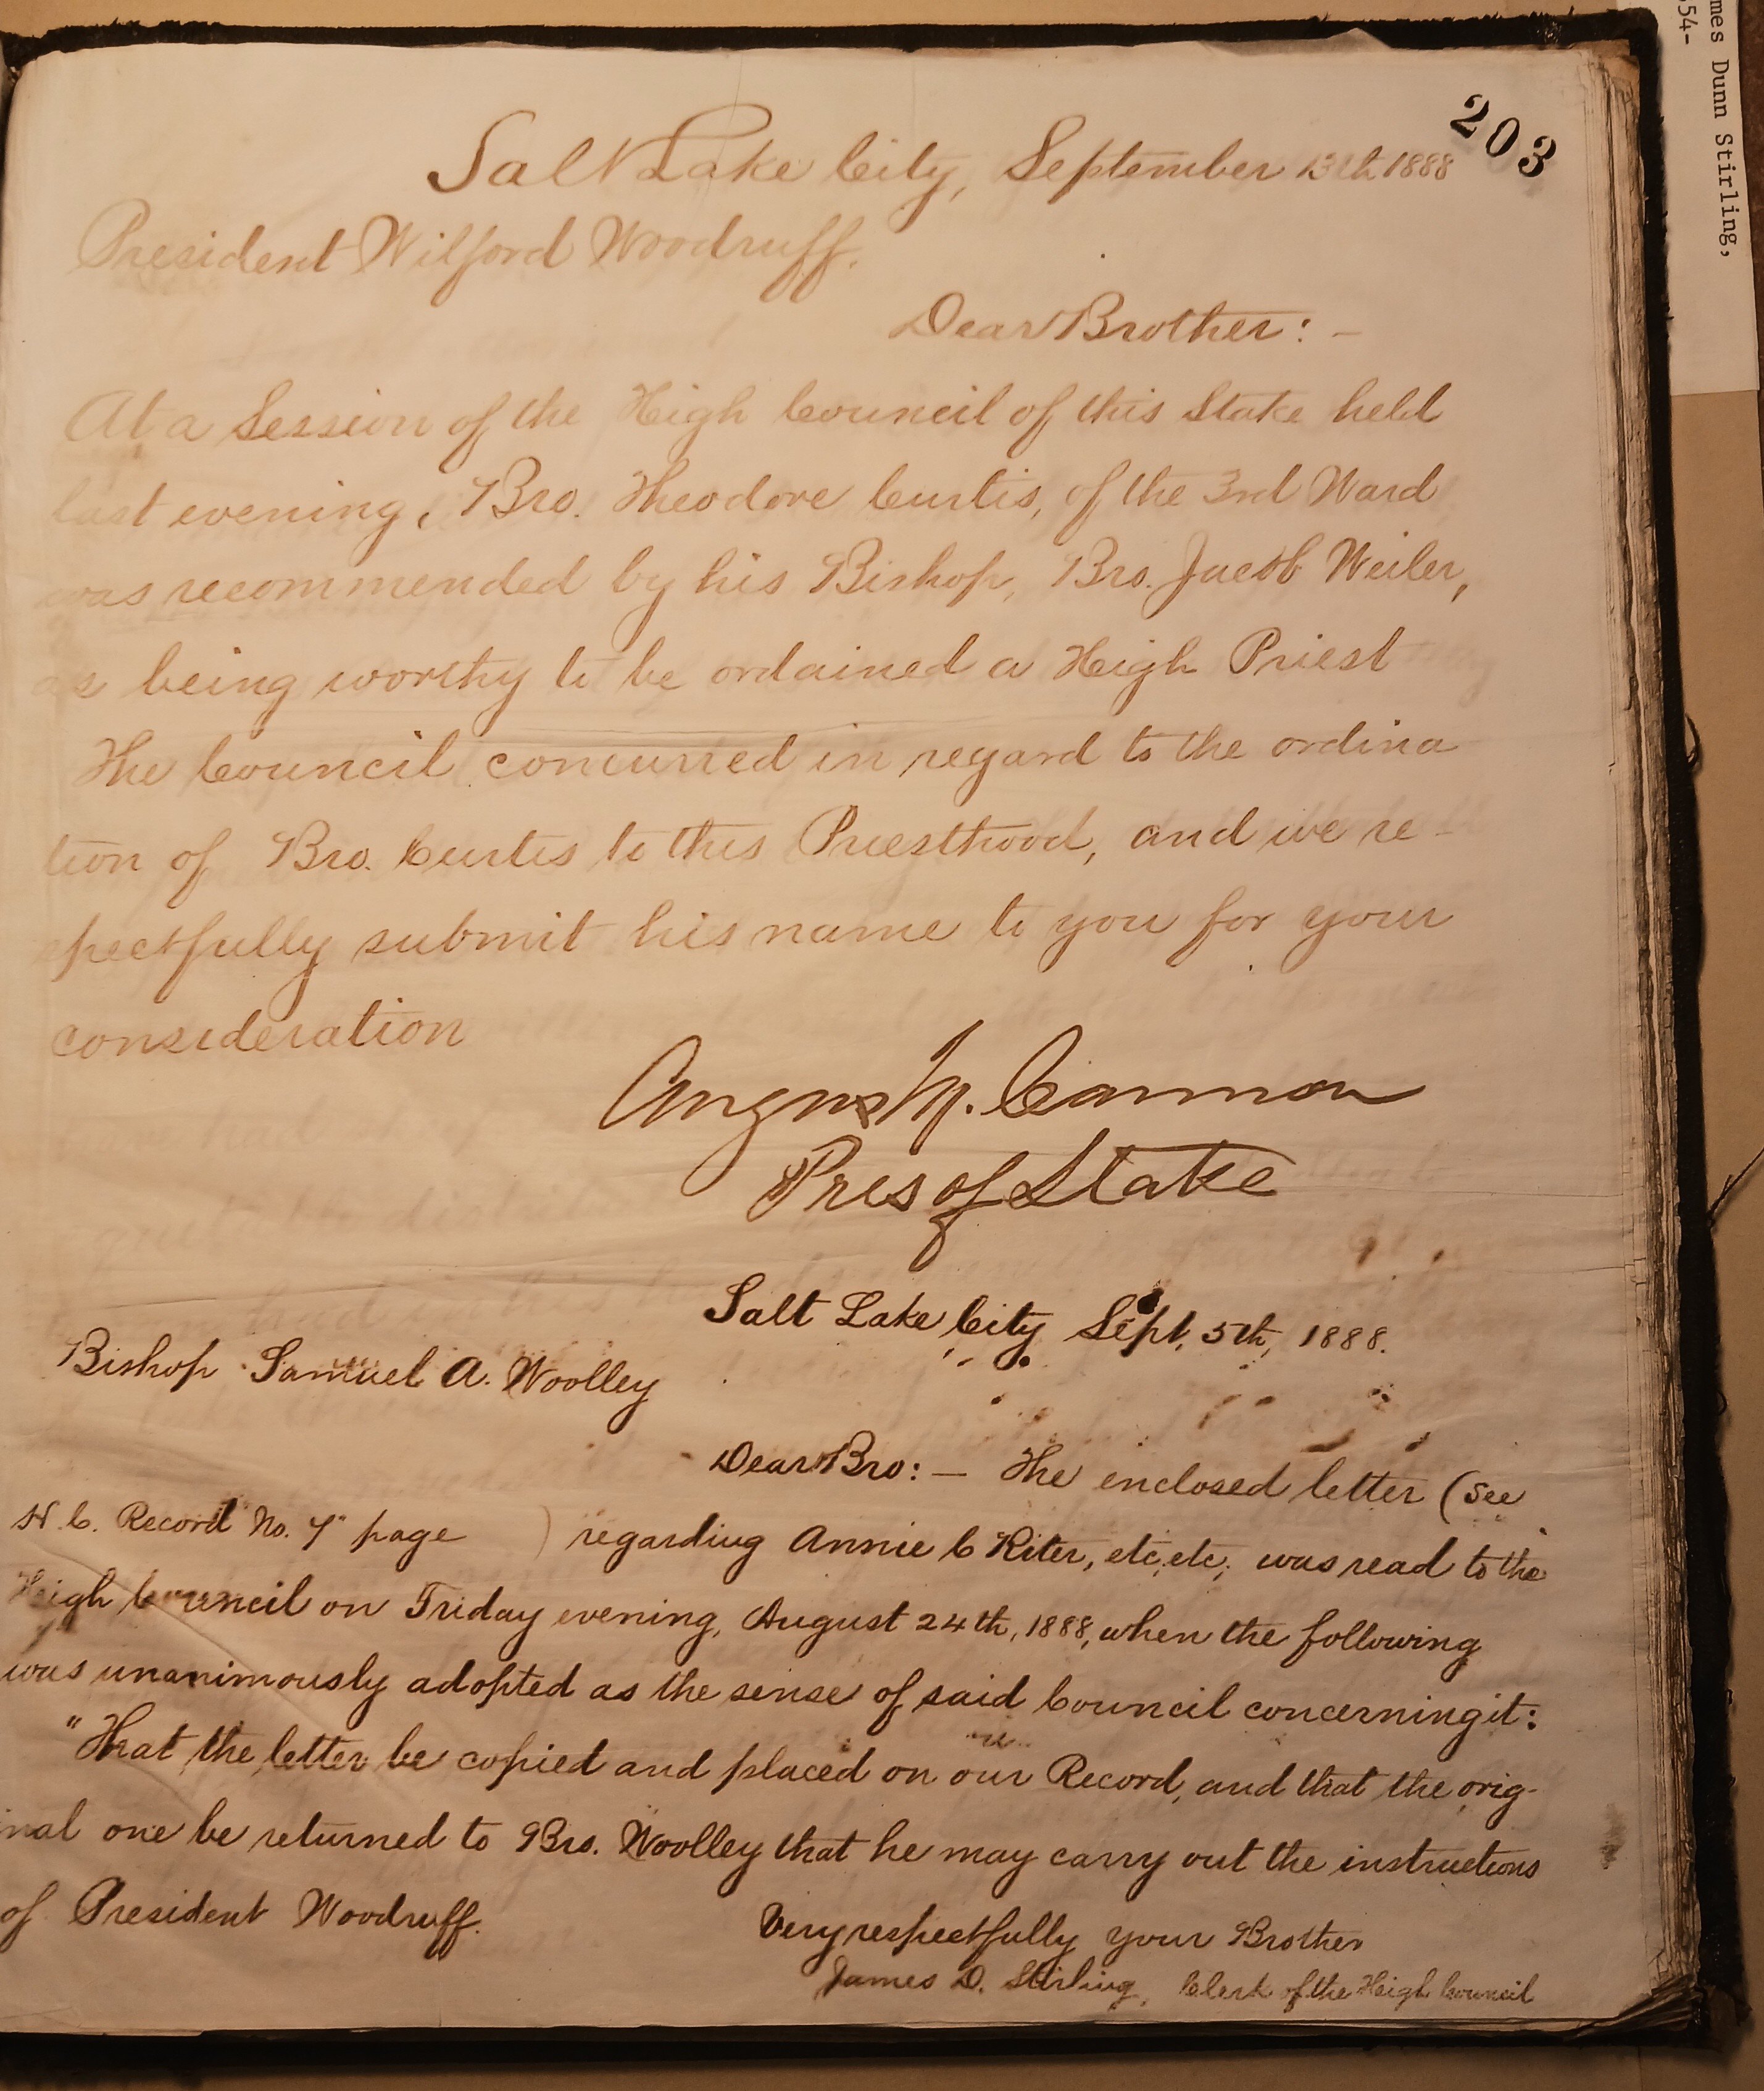 203
Salt Lake City, September 13th 1888
President Wilford Woodruff.
Dear Brother: –
At a Session of the High Council of this Stake held
last evening, Bro. Theodore Curtis, of the 3rd Ward
was recommended by his Bishop, Bro. Jacob Weiler,
as being worthy to be ordained a High Priest
The Council concurred in regard to the ordina
tion of Bro. Curtis to this Priesthood, and we re-
spectfully submit his name to you for your
consideration
Angus M. Cannon
Pres of Stake
Salt Lake City Sept, 5th, 1888.
Bishop Samuel A. Woolley
Dear Bro: – The enclosed letter (See
H. C. Record No. 7" page ) regarding Annie C Kiter, etc, etc, was read to the
High Council on Friday evening, August 24th, 1888, when the following
was unanimously adopted as the sense of said Council concerning it:
"That the letter be copied and placed on our Record, and that the orig-
inal one be returned to Bro. Woolley that he may carry out the instructions
of President Woodruff.
Very respectfully your Brother
James D. Stirling, Clerk of the High Council
mes Dunn Stirling,
54-